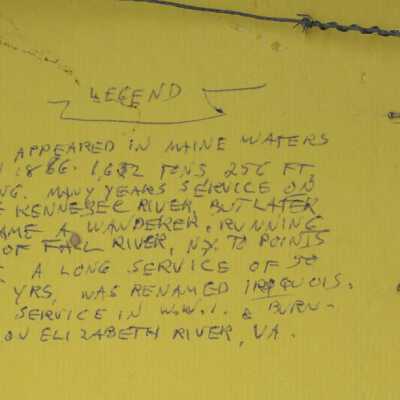 LEGEND
APPEARED IN MAINE WATERS
1866. 1,632 TONS 256 FT,
NG. MANY YEARS SERVICE ON
KENNEBEC RIVER, BUT LATER
AME A WANDERER, RUNNING
OF FALL RIVER, N.Y. TO POINTS
A LONG SERVICE OF 50
YRS, WAS RENAMED IROQUOIS.
SERVICE IN W.W.1. & BURN-
ON ELIZABETH RIVER, VA.